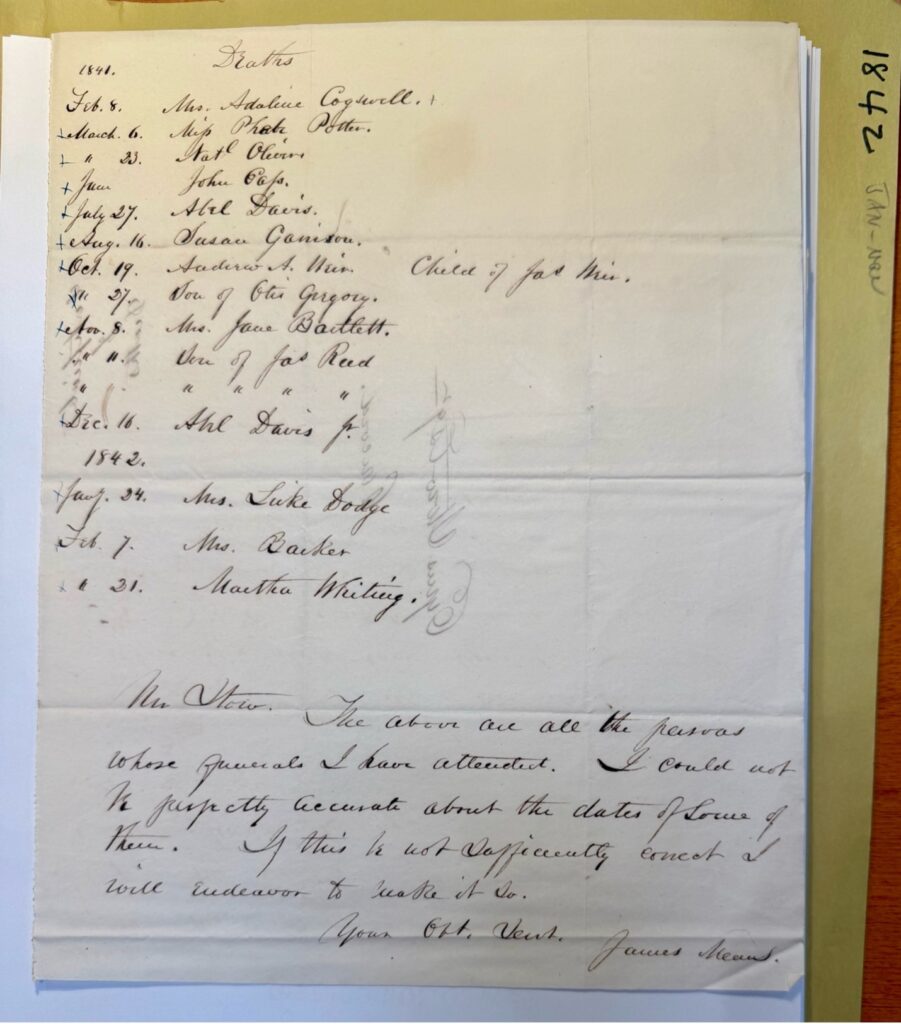 1841. Deaths
Feb. 8. Mrs. Adaline Cogswell. +
+ March. 6. Miss Phebe Potter.
+ " 23. Natl Olivers
+ June John Cass.
+ July 27. Abel Davis.
+ Aug. 16. Susan Garrison.
+ Oct. 19. Andrew A. Weir Child of Jas Weir.
+ " 27. Son of Otis Gregory.
+ Nov. 8. Mrs. Jane Bartlett.
" " Son of Jas Reed
" " " " " "
+ Dec. 16. Abel Davis jr.
1842.
+ Jany. 24. Mrs. Luke Dodge
+ Feb. 7. Mrs. Barker
+ " 21. Martha Whiting.
Mr Stow. The above are all the persons
whose funerals I have attended. I could not
be perfectly accurate about the dates of some of
them. If this be not sufficiently correct I
will endeavor to make it so.
Your Obt. Servt.
James Means.
1842
JAN-NOV